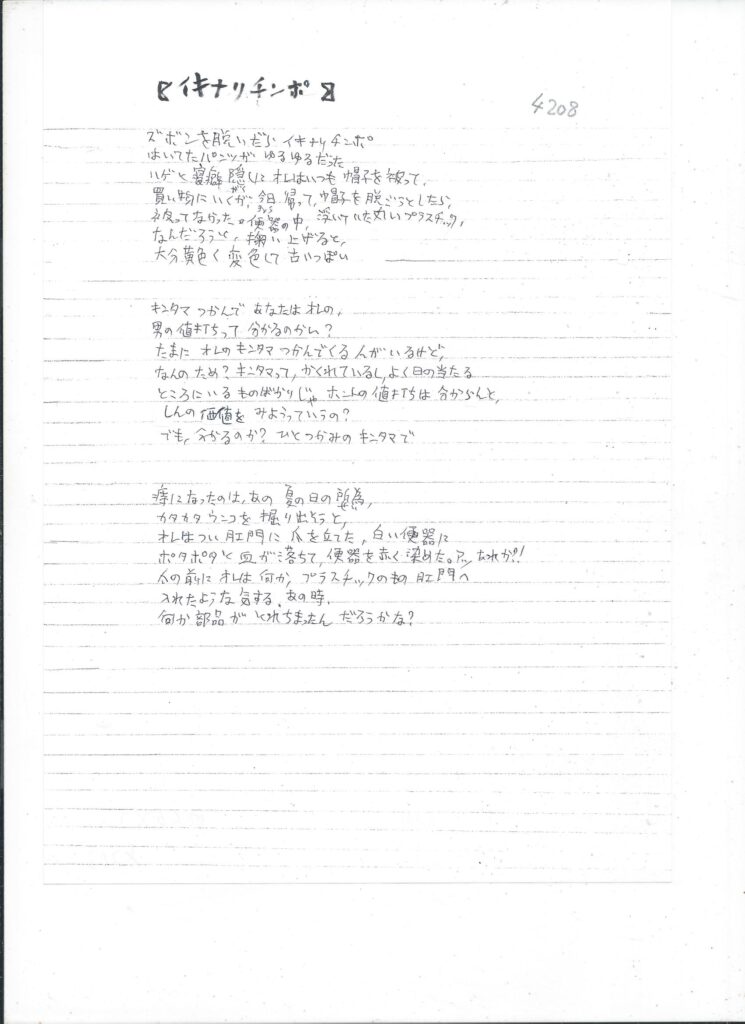 【イキナリチンポ】
4208
ズボンを脱いだら イキナリチンポ
はいてたパンツが ゆるゆるだった
ハゲと寝癖 隠しに オレはいつも 帽子を 被って、
買い物にいくが、今日 帰って、帽子を 脱ごうとしたら、
被ってなかった。便器の中、浮いていた丸いプラスチック、
なんだろうと、掬い上げると、
大分黄色く 変色して 古いっぽい
キンタマ つかんで あなたは オレの、
男の値打ちって 分かるのかい?
たまに オレの キンタマ つかんでくる 人がいるけど、
なんの ため? キンタマって、かくれているし、よく日の当たる
ところにいる ものばかりじゃ ホントの値打ちは 分からんと、
しんの 価値を みようっていうの?
でも、分かるのか? ひとつかみの キンタマで
痔になったのは、あの 夏の日の 所為、
せい
カタカタ ウンコを 掘り出そうと、
オレは つい 肛門に 爪を立てた、白い便器に
ポタポタと 血が落ちて、便器を赤く染めた。
の前に オレは 何か、プラスチックのもの 肛門へ
入れたような 気する、あの時、
何か部品が とれちまったん だろうかな?